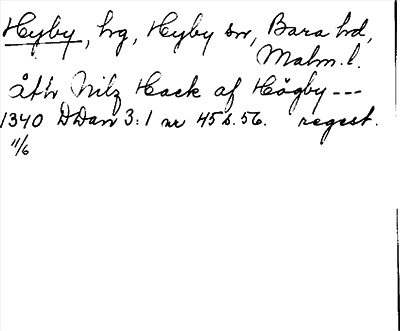 Hyby, hg, Hyby sn, Bara hd,
Malm. l.
åth Nilz Hack af Högby ---
1340 DDan 3:1 nr 45 s. 56. regest.
11/6